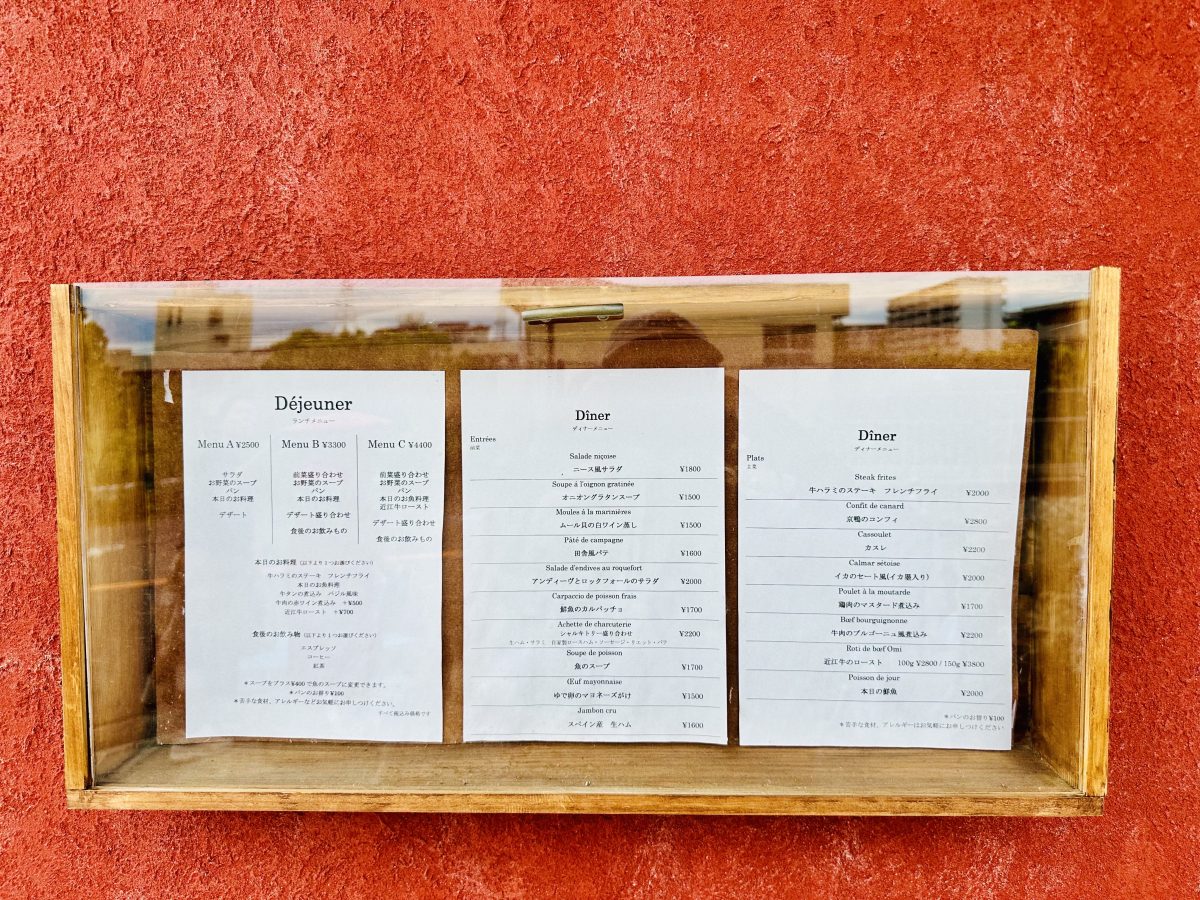 Déjeuner
ランチメニュー
Menu A ¥2500
サラダ
お野菜のスープ
パン
本日のお料理
デザート
Menu B ¥3300
前菜盛り合わせ
お野菜のスープ
パン
本日のお料理
デザート盛り合わせ
食後のお飲みもの
Menu C ¥4400
前菜盛り合わせ
お野菜のスープ
パン
本日のお魚料理
近江牛ロースト
デザート盛り合わせ
食後のお飲みもの
本日のお料理 (以下より1つお選びください)
牛ハラミのステーキ フレンチフライ
本日のお魚料理
牛タンの煮込み バジル風味
牛肉の赤ワイン煮込み +¥500
近江牛ロースト +¥700
食後のお飲み物 (以下より1つお選びください)
エスプレッソ
コーヒー
紅茶
*スープをプラス¥400で魚のスープに変更できます。
*パンのお替り¥100
*苦手な食材、アレルギーなどお気軽にお申しつけください。
すべて税込み価格です
Dîner
ディナーメニュー
Entrées
前菜
Salade nçoise
ニース風サラダ ¥1800
Soupe à l'oignon gratinée
オニオングラタンスープ ¥1500
Moules à la marinières
ムール貝の白ワイン蒸し ¥1500
Pâté de campagne
田舎風パテ ¥1600
Salade d'endives au roquefort
アンディーヴとロックフォールのサラダ ¥2000
Carpaccio de poisson frais
鮮魚のカルパッチョ ¥1700
Achette de charcuterie
シャルキトリー盛り合わせ ¥2200
生ハム・サラミ 自家製ロースハム・ソーセージ・リエット・パテ
Soupe de poisson
魚のスープ ¥1700
Œuf mayonnaise
ゆで卵のマヨネーズがけ ¥1500
Jambon cru
スペイン産 生ハム ¥1600
Dîner
ディナーメニュー
Plats
主菜
Steak frites
牛ハラミのステーキ フレンチフライ ¥2000
Confit de canard
京鴨のコンフィ ¥2800
Cassoulet
カスレ ¥2200
Calmar sétoise
イカのセート風(イカ墨入り) ¥2000
Poulet à la moutarde
鶏肉のマスタード煮込み ¥1700
Bœf bourguignonne
牛肉のブルゴーニュ風煮込み ¥2200
Roti de bœf Omi
近江牛のロースト 100g ¥2800 / 150g ¥3800
Poisson de jour
本日の鮮魚 ¥2000
*パンのお替り¥100
*苦手な食材、アレルギーはお気軽にお申しつけください